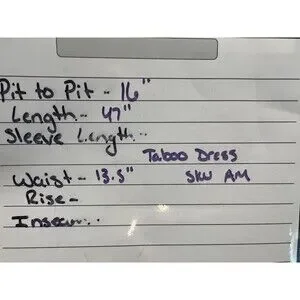 Pit to Pit - 16"
Length - 47"
Sleeve Length -
Taboo Dress
Waist - 13.5" SKU AM
Rise -
Inseam -